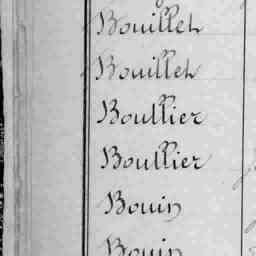 Bouillet
Bouillet
Boullier
Boullier
Bouin
Bouin